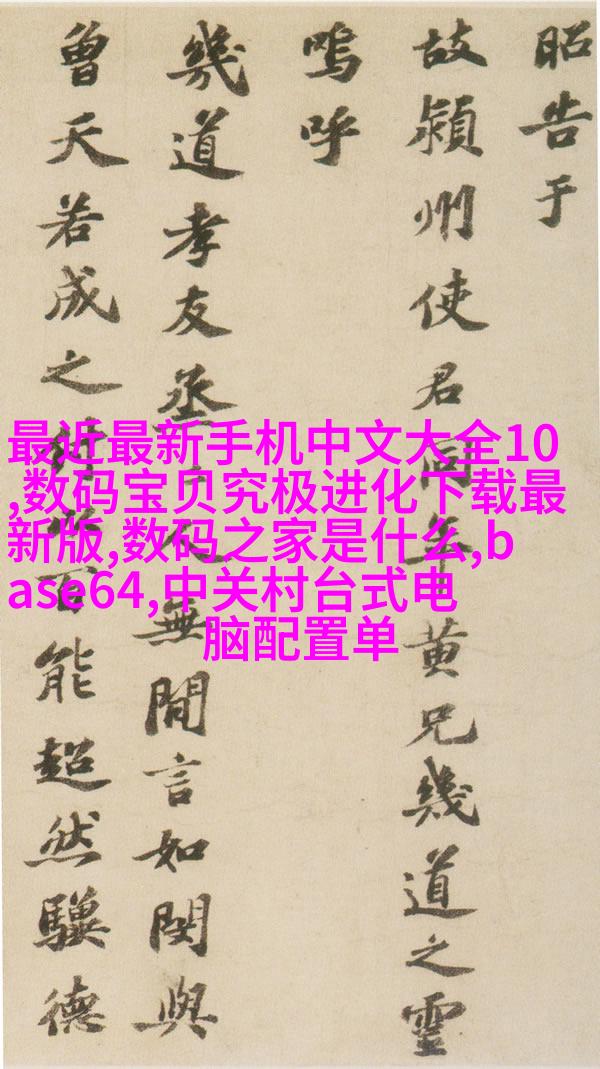 昭告于
故潁州使君同年黃兄幾道之靈
嗚呼
幾道孝友烝無閒言如閔與
曾天若成之百能超然驥德
最近最新手机中文大全10
,数码宝贝究极进化下载最
新版,数码之家是什么,b
ase64,中关村台式电
脑配置单